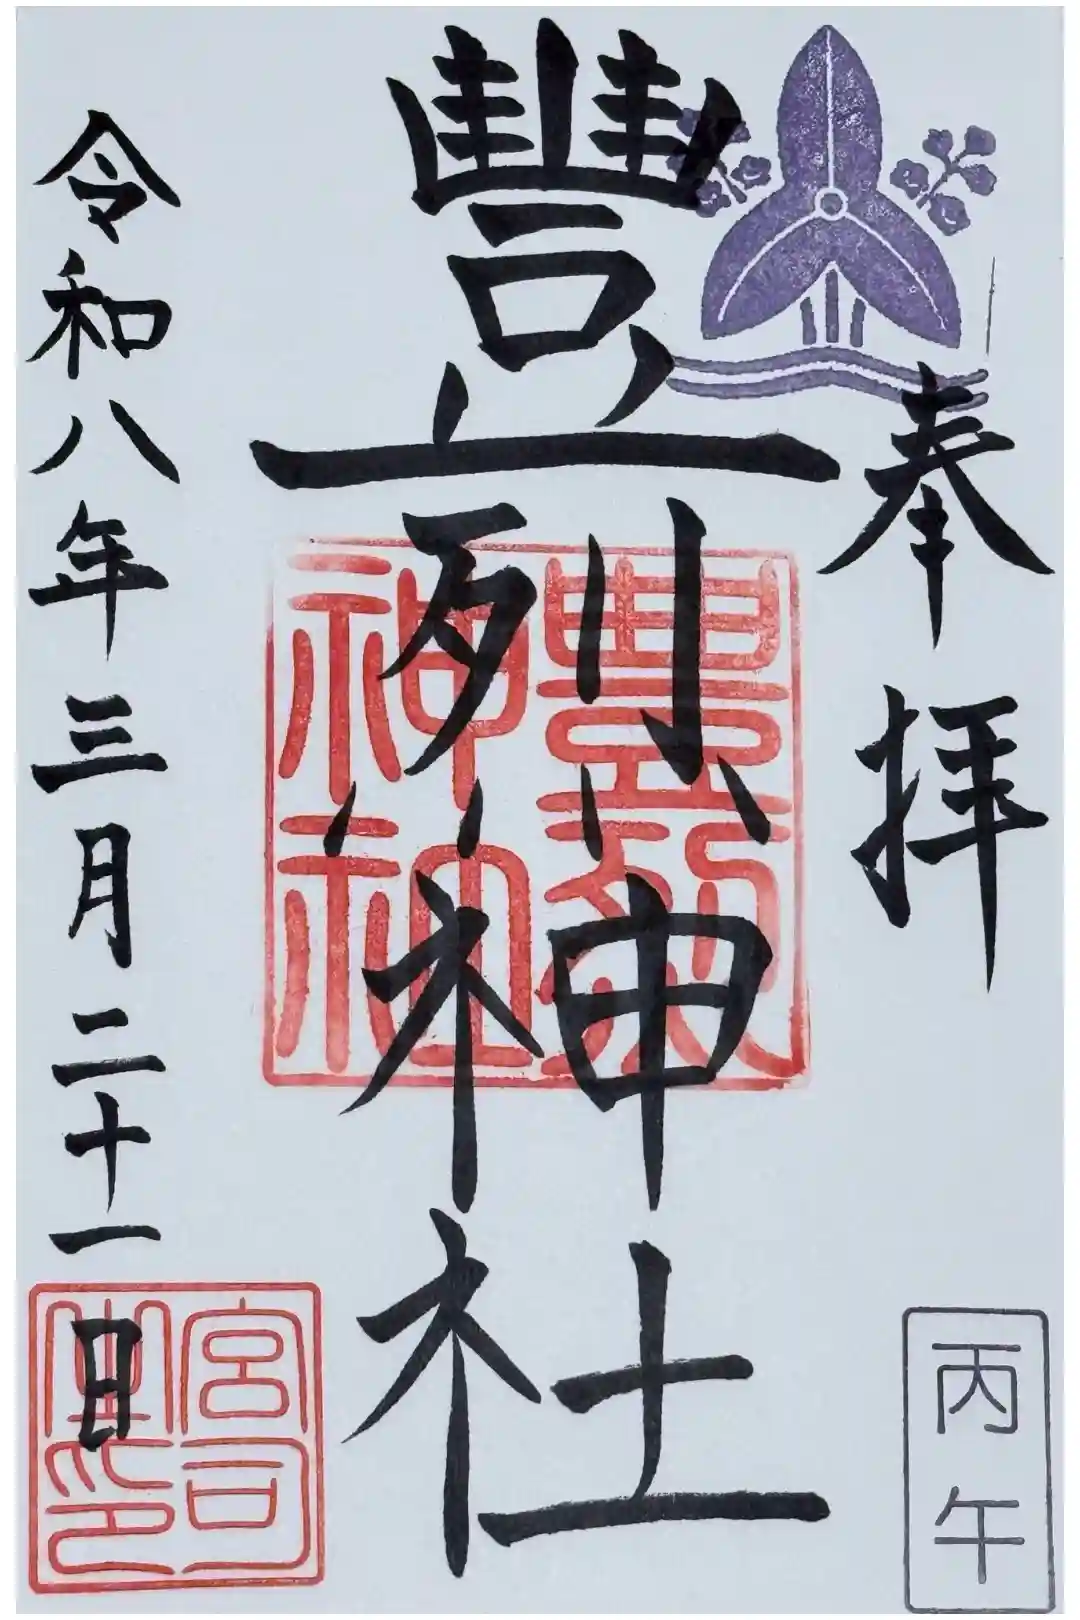 奉拝
丙午
豐烈神社
豐烈
神社
令和八年三月二十一日
宮司
之印